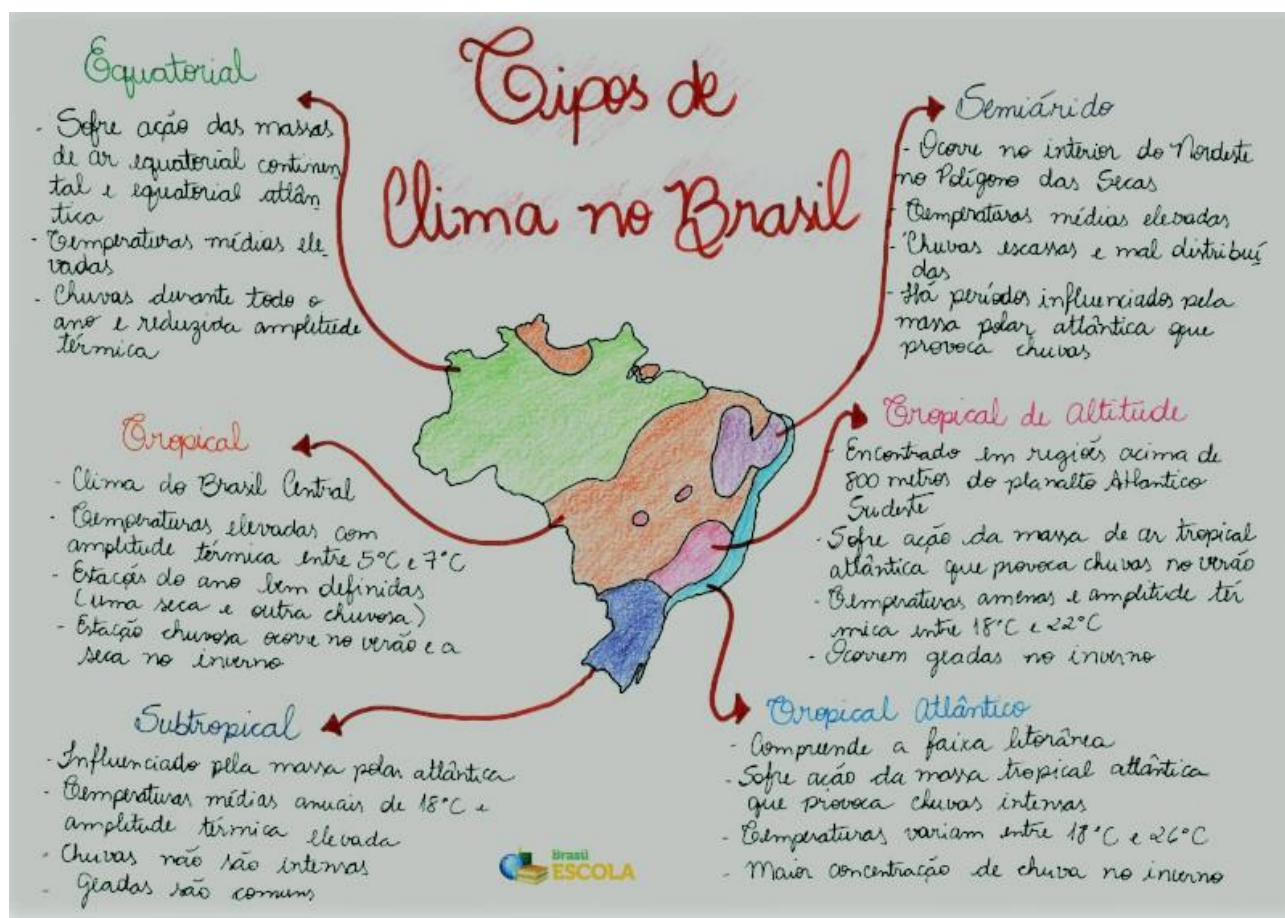 Tipos de
Clima no Brasil
Equatorial
- Sofre ação das massas
de ar equatorial continen
tal e equatorial atlân
tica
- Temperaturas médias ele_
vadas
- Chuvas durante todo o
ano e reduzida amplitude
térmica
Tropical
- Clima do Brasil Central
- Temperaturas elevadas com
amplitude térmica entre 5°C e 7°C
- Estações do ano bem definidas
(uma seca e outra chuvosa)
- Estação chuvosa ocorre no verão e a
seca no inverno
Subtropical
- Influenciado pela massa polar atlântica
- Temperaturas médias anuais de 18°C e
amplitude térmica elevada
- Chuvas não são intensas
- Geadas são comuns
Semiárido
- Ocorre no interior do Nordeste
no Polígono das Secas
- Temperaturas médias elevadas
- Chuvas escassas e mal distribuí
das
- Há períodos influenciados pela
massa polar atlântica que
provoca chuvas
Tropical de Altitude
- Encontrado em regiões acima de
800 metros do planalto Atlantico
Sudeste
- Sofre ação da massa de ar tropical
atlântica que provoca chuvas no verão
- Temperaturas amenas e amplitude tér
mica entre 18°C e 22°C
- Ocorrem geadas no inverno
Tropical Atlântico
- Compreende a faixa litorânea
- Sofre ação da massa tropical atlântica
que provoca chuvas intensas
- Temperaturas variam entre 18°C e 26°C
- Maior concentração de chuva no inverno
Brasil
ESCOLA